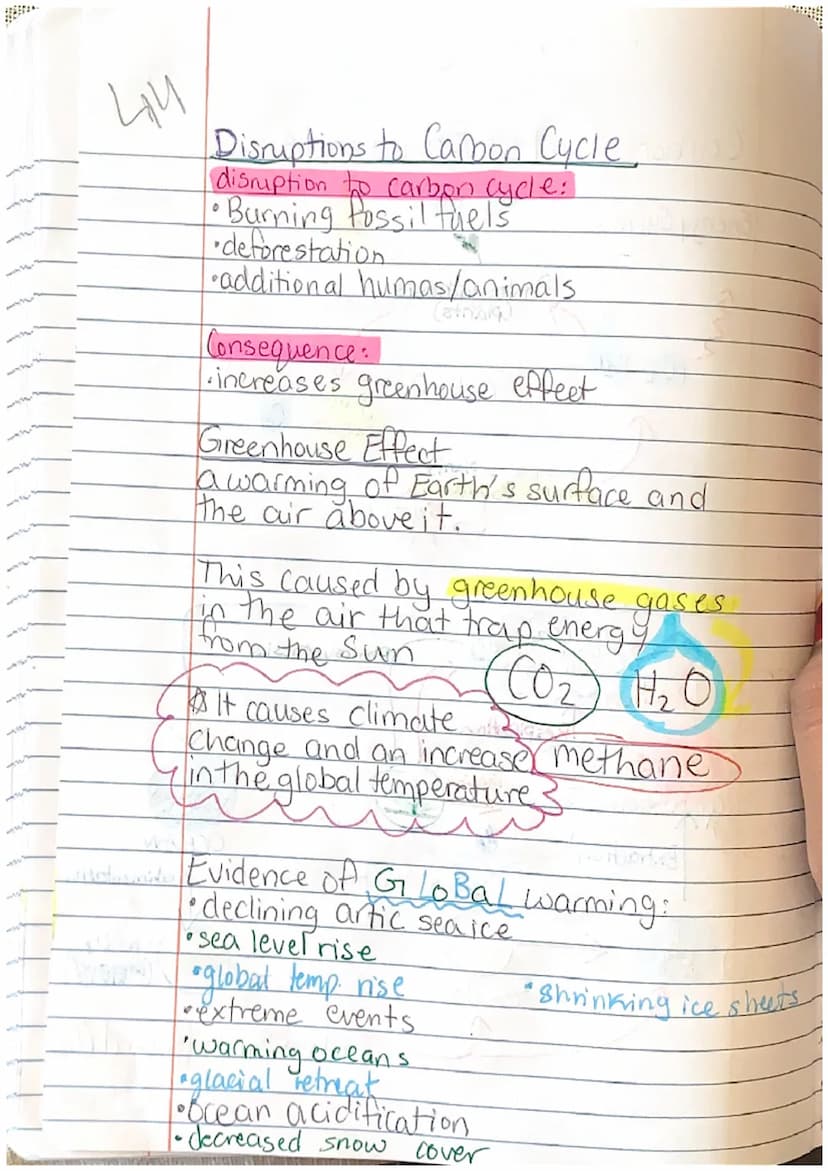 Disruptions to Carbon Cycle
disruption to carbon cycle:
•Burning fossil fuels
•deforestation
•additional humas/animals
Consequence:
•increases greenhouse effect
Greenhouse Effect
a warming of Earth's surface and
the air above it.
This caused by greenhouse gases
in the air that trap energy
from the Sun
CO2 H2O
It causes climate
change and an increase methane
in the global temperature
Evidence of GLoBaL warming:
•declining artic sea ice
•sea level rise
•global temp. rise •Shrinking ice sheets
•extreme events
•warming oceans
•glacial retreat
•ocean acidification
•decreased snow cover